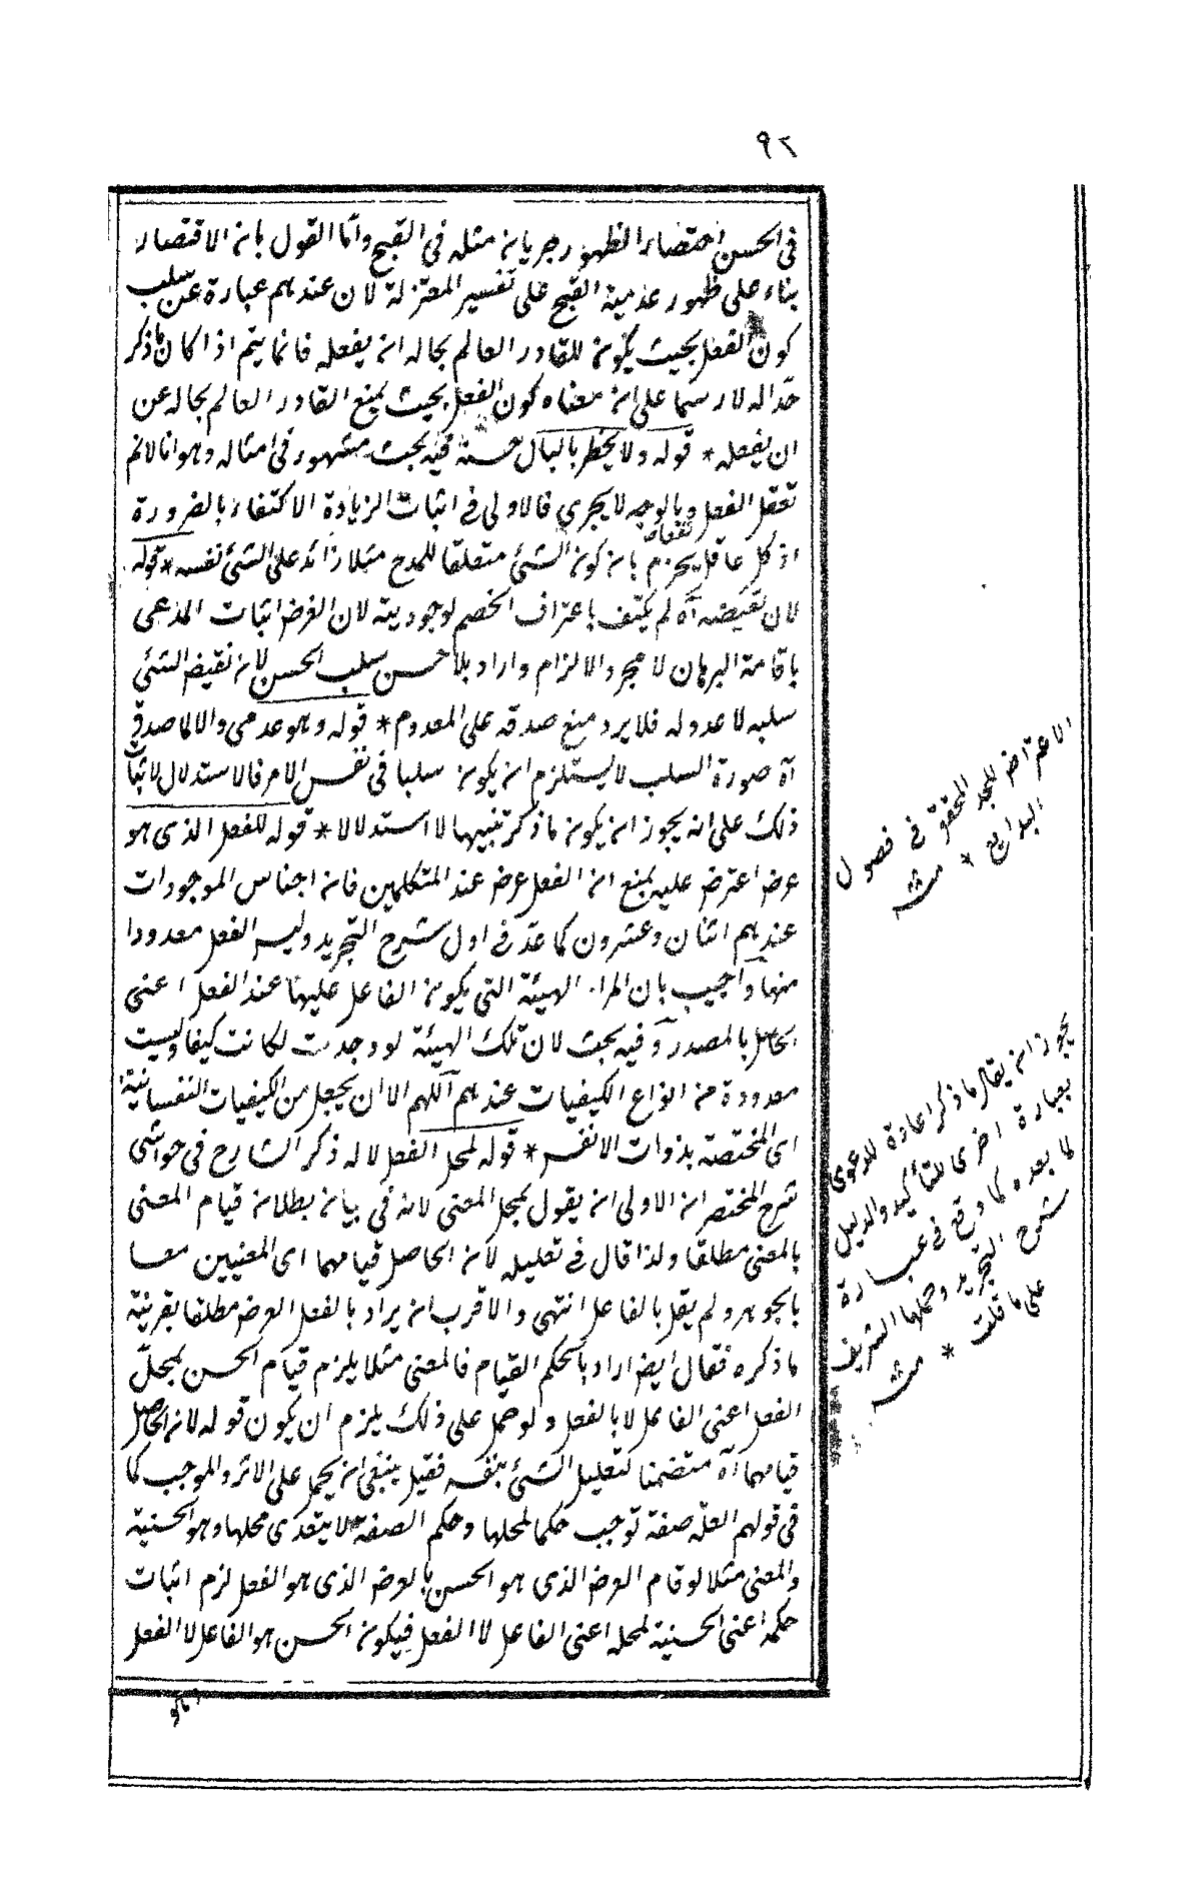 ٩٢
في الحسن اختصارا لظهور جريان مثله في القبح واما القول بان الاقتصار
بناء على ظهور عدمية القبح على تفسير المعتزلة لان عندهم عبارة عن سلب
كون الفعل بحيث يكون للقادر العالم بحاله ان يفعله فانما يتم اذا كان ما ذكر
حدا له لا رسما على ان معناه كون الفعل بحيث يمنع القادر العالم بحاله عن
ان يفعله * قوله ولا يخطر بالبال حسنه فيه بحث مشهور في امثاله وهو انا لانم
تعقل الفعل وبالوجه لا يجري فالاولى في اثبات الزيادة الاكتفاء بالضرورة
اذ كل عاقل يجزم بان كون الشئ متعلقا للمدح مثلا زائد على الشئ نفسه * قوله
لان نقيضه آه لم يكتف باعتراف الخصم لوجوديته لان الغرض اثبات المدعى
باقامة البرهان لا مجرد الالزام واراد بلا حسن سلب الحسن لان نقيض الشئ
سلبه لا عدوله فلا يرد منع صدقه على المعدوم * قوله وهو عدمى والا لما صدق
آه صورة السلب لا يستلزم ان يكون سلبا في نفس الامر فالاستدلال لاثبات
ذلك على انه يجوز ان يكون ما ذكر تنبيها لا استدلالا * قوله للفعل الذى هو
عرض اعترض عليه بمنع ان الفعل عرض عند المتكلمين فان اجناس الموجودات
عندهم اثنان وعشرون كما عد في اول شرح التجريد وليس الفعل معدودا
منها واجيب بان المراد الهيئة التى يكون الفاعل عليها عند الفعل اعنى
الحاصل بالمصدر وفيه بحث لان تلك الهيئة لو وجدت لكانت كيفا وليست
معدودة من انواع الكيفيات عندهم اللهم الا ان يجعل من الكيفيات النفسانية
اى المختصة بذوات الانفس * قوله لمحل الفعل لا له ذكر الشارح في حواشى
شرح المختصر ان الاولى ان يقول لمحل المعنى لانه في بيان بطلان قيام المعنى
بالمعنى مطلقا ولذا قال في تعليله لان الحاصل قيامهما اى المعنيين معا
بالجوهر ولم يقل بالفاعل انتهى والاقرب ان يراد بالفعل العرض مطلقا بقرينة
ما ذكره فقال ايضا اراد بالحكم القيام فالمعنى مثلا يلزم قيام الحسن بمحل
الفعل اعنى الفاعل لا بالفعل ولو حمل على ذلك يلزم ان يكون قوله لان الحاصل
قيامهما آه متضمنا لتعليل الشئ بنفسه فقيل ينبغي ان يحمل على الاثر والموجب كما
في قولهم العلة صفة توجب حكما لمحلها وحكم الصفة لا يتعدى محلها وهو الحسنية
والمعنى مثلا لو قام العرض الذى هو الحسن بالعرض الذى هو الفعل لزم اثبات
حكمه اعنى الحسنية لمحله اعنى الفاعل لا الفعل فيكون الحسن هو الفاعل لا الفعل
الاعتراض للجد المحقق في فصول
البدايع * منه
يجوز ان يقال ما ذكر اعادة للدعوى
بعبارة اخرى للتأكيد والدليل
لما بعده كما وقع في عبارة
شرح التجريد وحملها الشريف
على ما قلت * منه